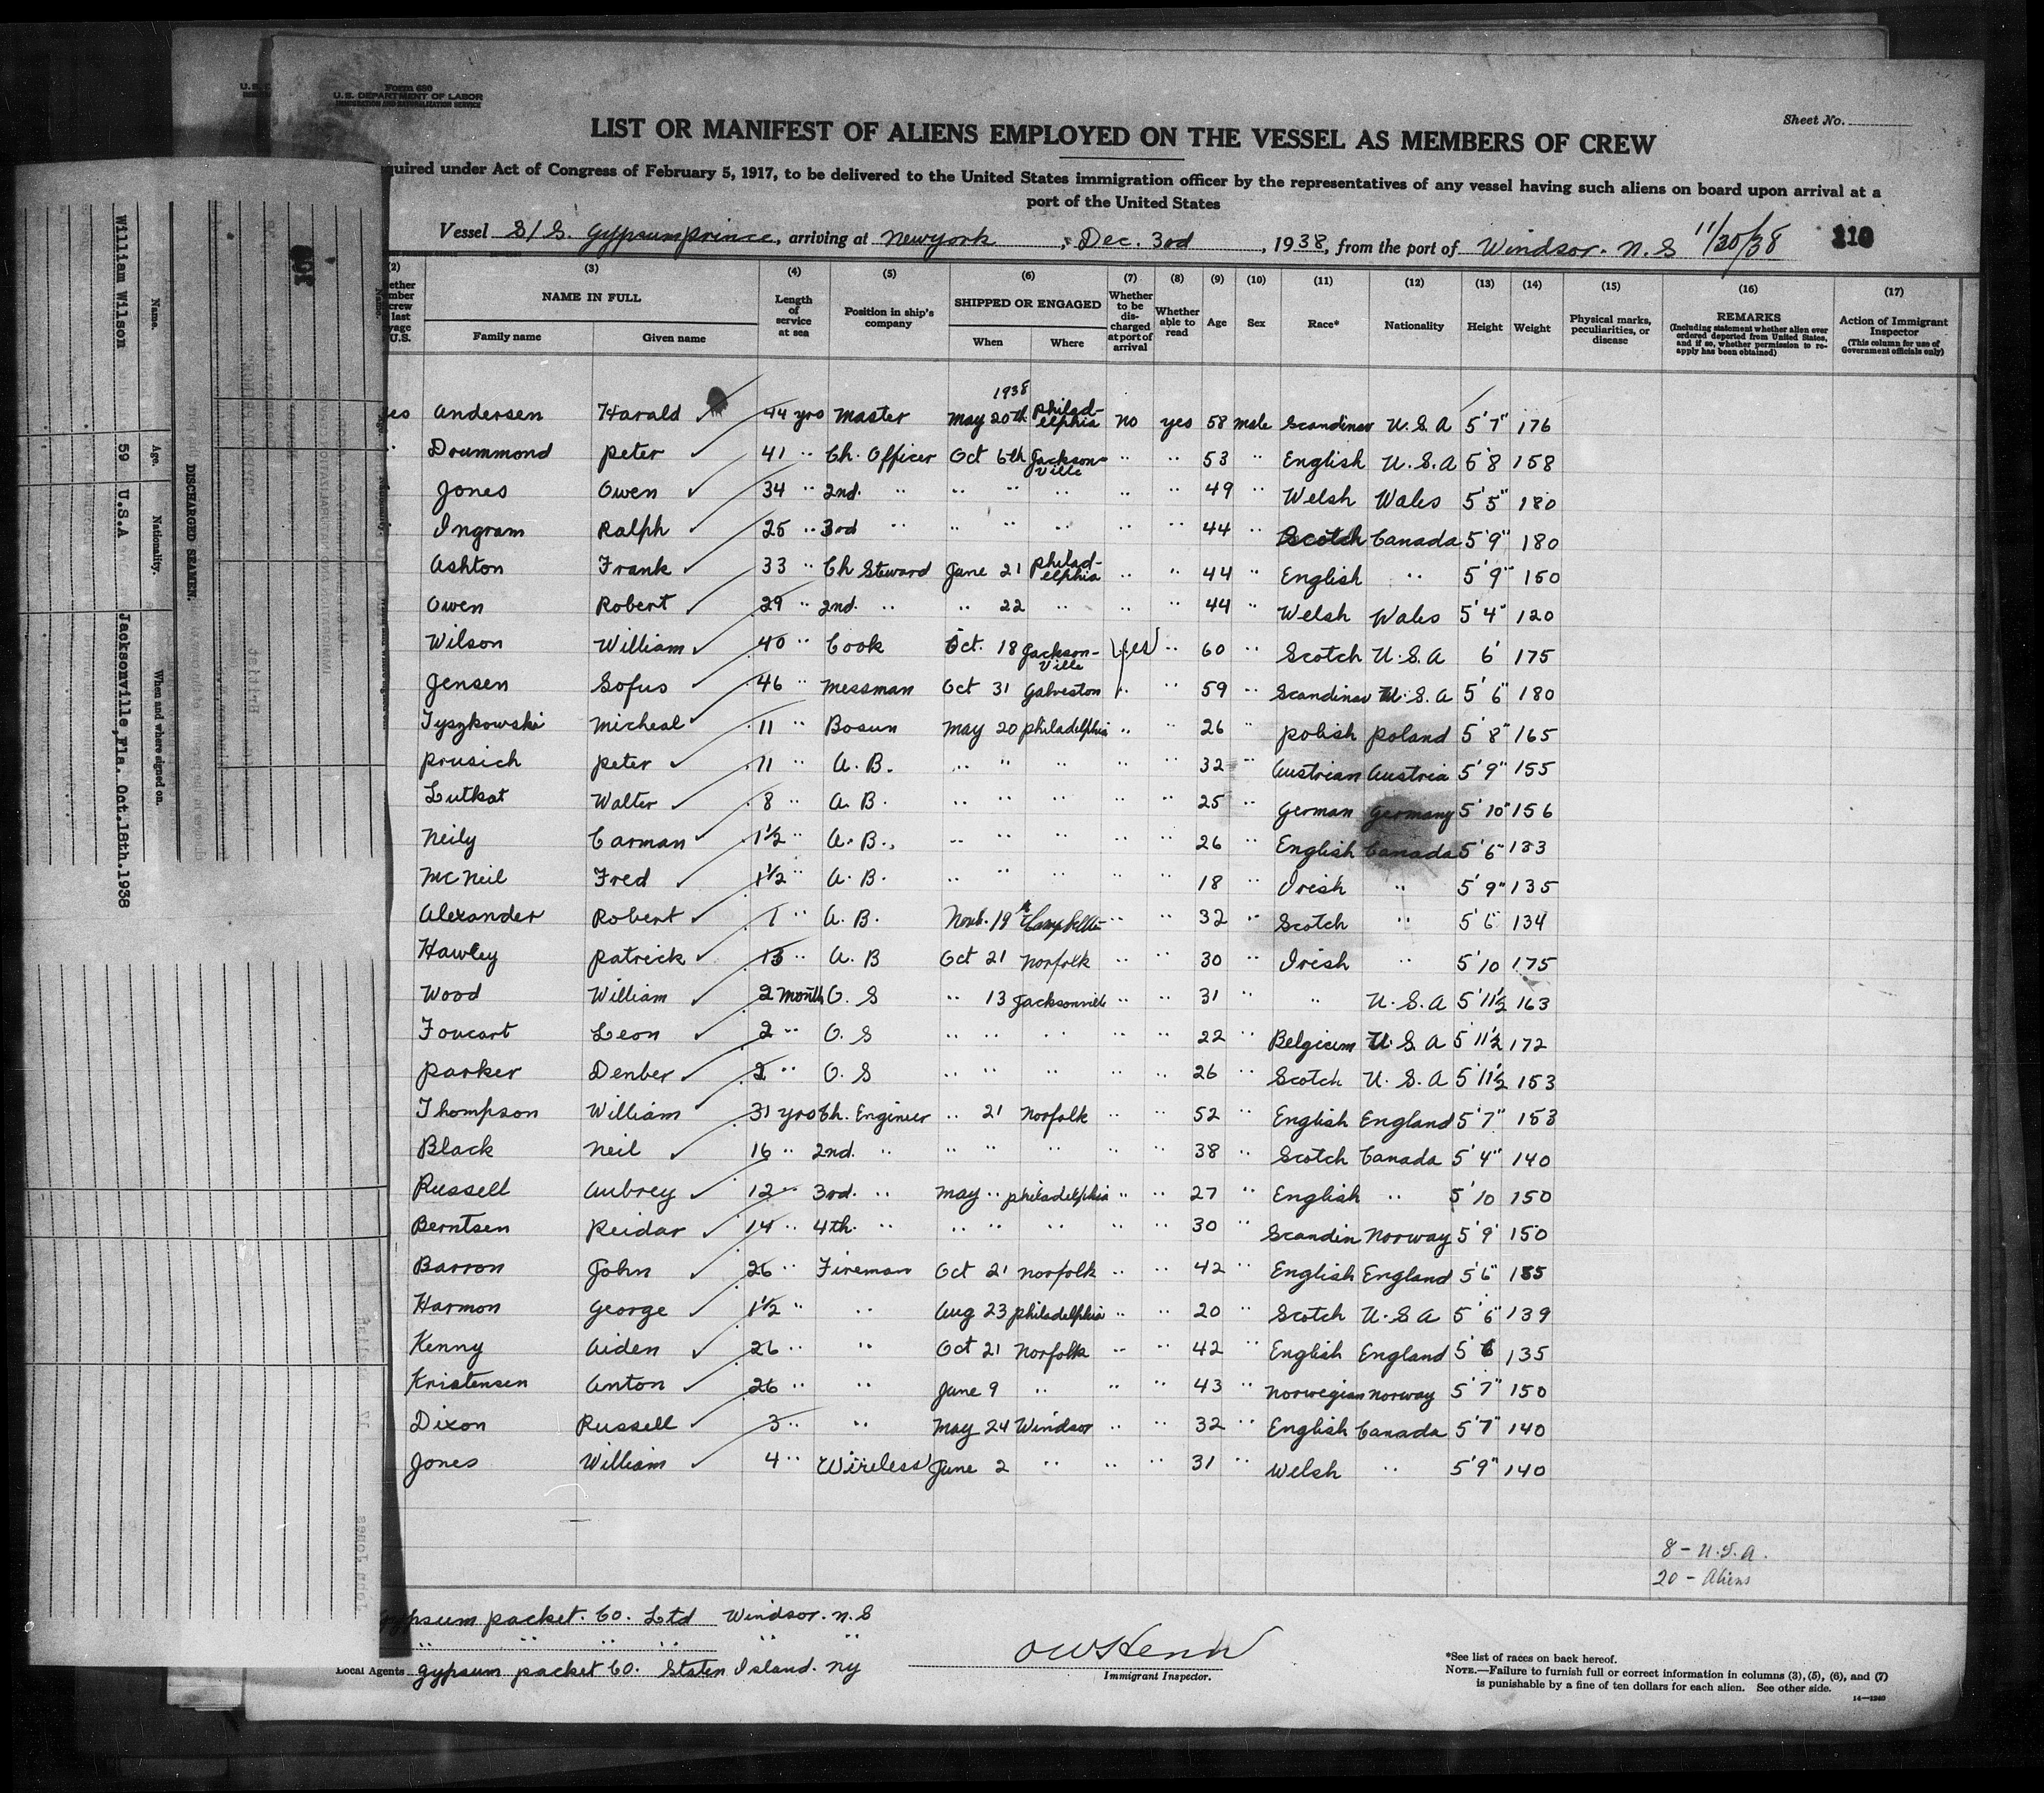 Form 680
U.S. DEPARTMENT OF LABOR
IMMIGRATION AND NATURALIZATION SERVICE
Sheet No.
LIST OR MANIFEST OF ALIENS EMPLOYED ON THE VESSEL AS MEMBERS OF CREW
quired under Act of Congress of February 5, 1917, to be delivered to the United States immigration officer by the representatives of any vessel having such aliens on board upon arrival at a
port of the United States
Vessel S/S. Gypsum prince, arriving at Newyork, Dec. 3rd, 1938, from the port of Windsor. N. S 11/30/38 210
(2) (3) (4) (5) (6) (7) (8) (9) (10) (11) (12) (13) (14) (15) (16) (17)
ether mber crew last yage U.S. NAME IN FULL Family name Given name Length of service at sea Position in ship's company SHIPPED OR ENGAGED When Where Whether to be discharged at port of arrival Whether able to read Age Sex Race* Nationality Height Weight Physical marks, peculiarities, or disease REMARKS (Including statement whether alien ever ordered deported from United States, and if so, whether permission to reapply has been obtained) Action of Immigrant Inspector (This column for use of Government officials only)
1938
es Andersen Harald 44 yrs Master May 20th Philad-elphia no yes 58 male Scandinav U.S.A 5'7" 176
Drummond Peter 41 " Ch. Officer Oct 6th Jackson-ville " " 53 " English U.S.A 5'8 158
Jones Owen 34 " 2nd. " " " " " " 49 " Welsh Wales 5'5" 180
Ingram Ralph 25 " 3rd " " " " " " 44 " Scotch Canada 5'9" 180
Ashton Frank 33 " Ch Steward June 21 Philad-elphia " " 44 " English " 5'9" 150
Owen Robert 29 " 2nd. " " 22 " " " 44 " Welsh Wales 5'4" 120
Wilson William 40 " Cook Oct. 18 Jackson-ville yes " 60 " Scotch U.S.A 6' 175
Jensen Sofus 46 " Messman Oct 31 Galveston " " 59 " Scandinav U.S.A 5'6" 180
Tyszkowski Micheal 11 " Bosun May 20 Philadelphia " " 26 " Polish Poland 5'8" 165
Prusich Peter 11 " A.B. " " " " " 32 " Austrian Austria 5'9" 155
Lutkat Walter 8 " A.B. " " " " " 25 " German Germany 5'10" 156
Neily Carman 1½ " A.B. " " " " " 26 " English Canada 5'6" 133
McNeil Fred 1½ " A.B. " " " " " 18 " Irish " 5'9" 135
Alexander Robert 1 " A.B. Nov. 19 " " 32 " Scotch " 5'6 134
Hawley Patrick 13 " A.B Oct 21 Norfolk " " 30 " Irish " 5'10 175
Wood William 2 months O.S " 13 Jacksonville " " 31 " " U.S.A 5'11½ 163
Foucart Leon 2 " O.S " " " " " 22 " Belgicum U.S.A 5'11½ 172
Parker Denber 2 " O.S " " " " " 26 " Scotch U.S.A 5'11½ 153
Thompson William 31 yrs Ch. Engineer " 21 Norfolk " " 52 " English England 5'7" 153
Black Neil 16 " 2nd. " " " " " " 38 " Scotch Canada 5'4" 140
Russell Aubrey 12 " 3rd. " May " Philadelphia " " 27 " English " 5'10 150
Berntsen Reidar 14 " 4th. " " " " " " 30 " Scandin Norway 5'9' 150
Barron John 26 " Fireman Oct 21 Norfolk " " 42 " English England 5'6" 155
Harmon George 1½ " " Aug 23 Philadelphia " " 20 " Scotch U.S.A 5'6" 139
Kenny Aiden 26 " " Oct 21 Norfolk " " 42 " English England 5'6 135
Kristensen Anton 26 " " June 9 " " " 43 " Norwegian Norway 5'7" 150
Dixon Russell 3 " " May 24 Windsor " " 32 " English Canada 5'7" 140
Jones William 4 " Wireless June 2 " " " 31 " Welsh " 5'9" 140
8 - U.S.A.
20 - Aliens
Gypsum packet. Co. Ltd Windsor. N.S
" " " " " "
Local Agents Gypsum packet Co. Staten Island. NY
Immigrant Inspector.
*See list of races on back hereof.
NOTE.—Failure to furnish full or correct information in columns (3), (5), (6), and (7)
is punishable by a fine of ten dollars for each alien. See other side.
14—1240
DISCHARGED SEAMEN.
Name. Age. Nationality. When and where signed on.
William Wilson 59 U.S.A Jacksonville,Fla. Oct.18th.1938